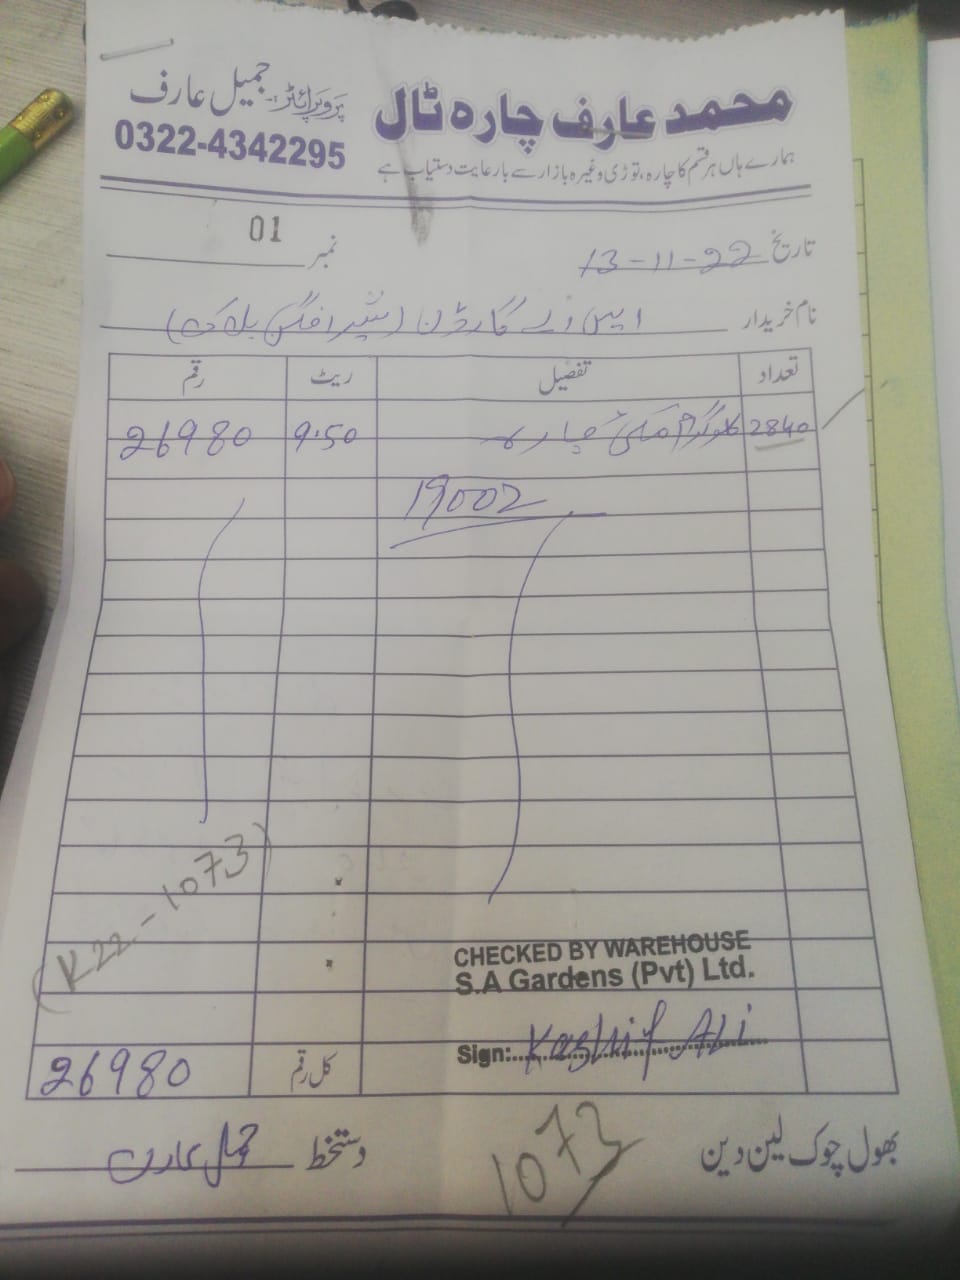 محمد عارف چارہ ٹال
پروپرائٹر:- جمیل عارف
0322-4342295
ہمارے ہاں ہر قسم کا چارہ، توڑی وغیرہ بازار سے بارعایت دستیاب ہے
تاریخ 13-11-22
نمبر 01
نام خریدار ایس اے گارڈن (شیر افگن بلاک)
تعداد تفصیل ریٹ رقم
2840 کلوگرام مکئی چارہ 9.50 26980
19002
(K22-1073)
CHECKED BY WAREHOUSE
S.A Gardens (Pvt) Ltd.
Sign: Kashif Ali
کل رقم 26980
بھول چوک لین دین
1073
دستخط جمیل عارف